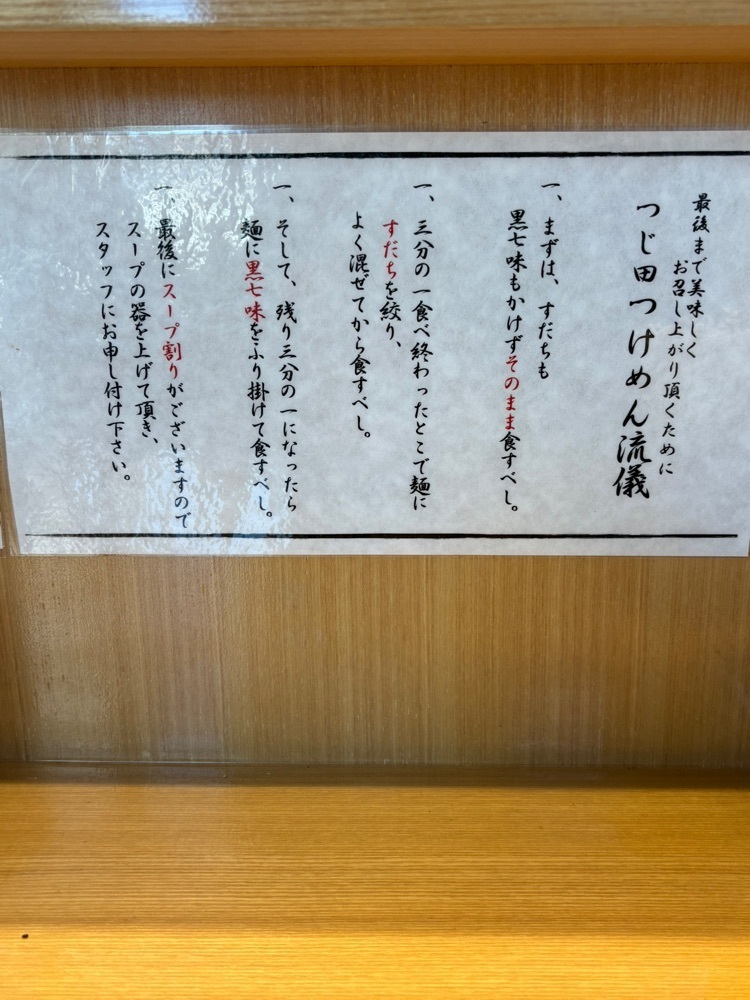 最後まで美味しく
お召し上がり頂くために
つじ田つけめん流儀
一、まずは、すだちも
黒七味もかけずそのまま食すべし。
一、三分の一食べ終わったとこで麺に
すだちを絞り、
よく混ぜてから食すべし。
一、そして、残り三分の一になったら
麺に黒七味をふり掛けて食すべし。
一、最後にスープ割りがございますので
スープの器を上げて頂き、
スタッフにお申し付け下さい。